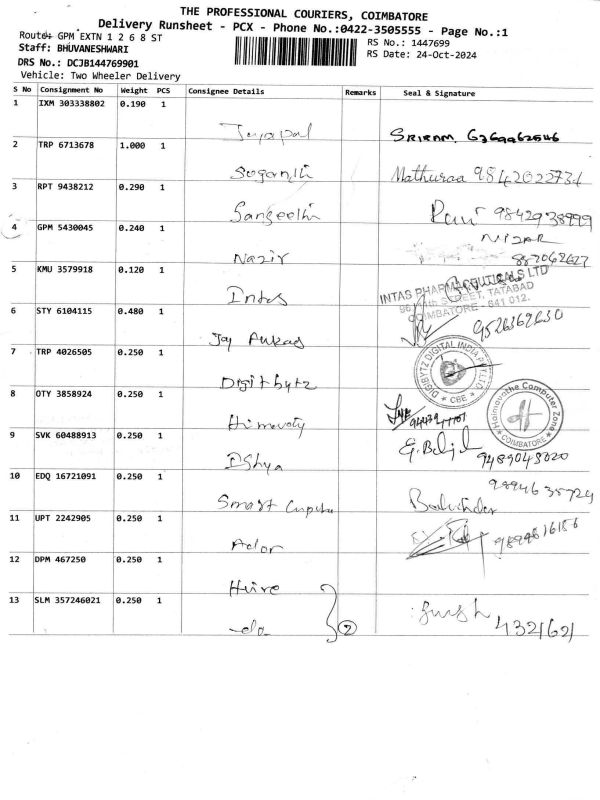 THE PROFESSIONAL COURIERS, COIMBATORE
Delivery Runsheet - PCX - Phone No.:0422-3505555 - Page No.:1
Route: GPM EXTN 1 2 6 8 ST
RS No.: 1447699
Staff: BHUVANESHWARI
RS Date: 24-Oct-2024
DRS No.: DCJB144769901
Vehicle: Two Wheeler Delivery
S No Consignment No Weight PCS Consignee Details Remarks Seal & Signature
1 IXM 303338802 0.190 1
Jayapal SRIRAM 6369962546
2 TRP 6713678 1.000 1
Suganthi Mathuraa 9842022734
3 RPT 9438212 0.290 1
Sangeethi Ravi 9842938999
4 GPM 5430045 0.240 1
NIZAR
Nazir
5 KMU 3579918 0.120 1
INTAS PHARMACEUTICALS LTD
STREET, TATABAD
COIMBATORE - 641 012.
Intas
6 STY 6104115 0.480 1
9526362630
Jay
7 TRP 4026505 0.250 1
DIGIBYTZ DIGITAL INDIA PVT LTD
* CBE *
Digitbytz
8 OTY 3858924 0.250 1
Computer Zone
* COIMBATORE *
Himavaty
9 SVK 60488913 0.250 1
9489043020
Dshya
10 EDQ 16721091 0.250 1
9894635724
Smart Balvinder
11 UPT 2242905 0.250 1
Ador
12 DPM 467250 0.250 1
Hire
13 SLM 357246021 0.250 1
-do- 2 4321621